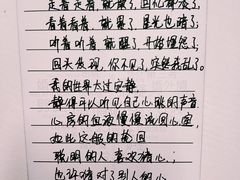 走着走着，就散了，回忆都淡了；
看着看着，就累了，星光也暗了；
听着听着，就醒了，开始埋怨了；
回头发现，你不见了，突然我乱了。
我的世界太过安静
静得可以听见自己心跳的声音
心房的血液慢慢流回心室
如此这般的轮回
聪明的人 喜欢猜心；
也许猜对了别人的心